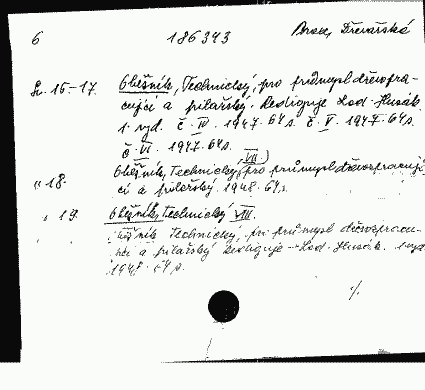 6 186343 Prace, Dřevařské
Sv. 15-17. Oběžník, Technický, pro průmysl dřevozpra-
cující a pilařský. Rediguje Lad. Husák.
1. vyd. č. IV. 1947. 64 s. č. V. 1947. 64 s.
č. VI. 1947. 64 s.
VII.)
" 18. Oběžník, Technický, pro průmysl dřevozpracují-
cí a pilařský. 1948. 64 s.
" 19. Oběžník, Technický VIII.
Oběžník Technický, pro průmysl dřevozpracu-
jící a pilařský Rediguje Lad. Husák. 1. vyd.
1948. 64 s.
./.